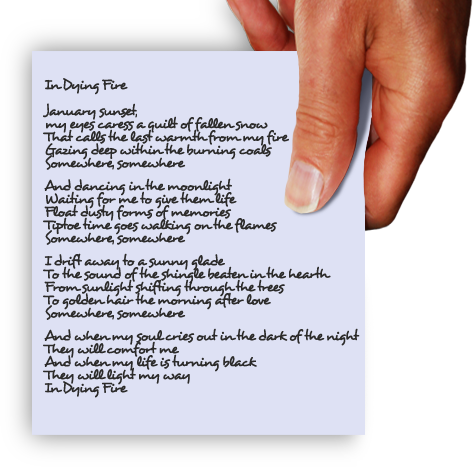 In Dying Fire
January sunset,
my eyes caress a quilt of fallen snow
That calls the last warmth from my fire
Gazing deep within the burning coals
Somewhere, somewhere
And dancing in the moonlight
Waiting for me to give them life
Float dusty forms of memories
Tiptoe time goes walking on the flames
Somewhere, somewhere
I drift away to a sunny glade
To the sound of the shingle beaten in the hearth
From sunlight shifting through the trees
To golden hair the morning after love
Somewhere, somewhere
And when my soul cries out in the dark of the night
They will comfort me
And when my life is turning black
They will light my way
In Dying Fire